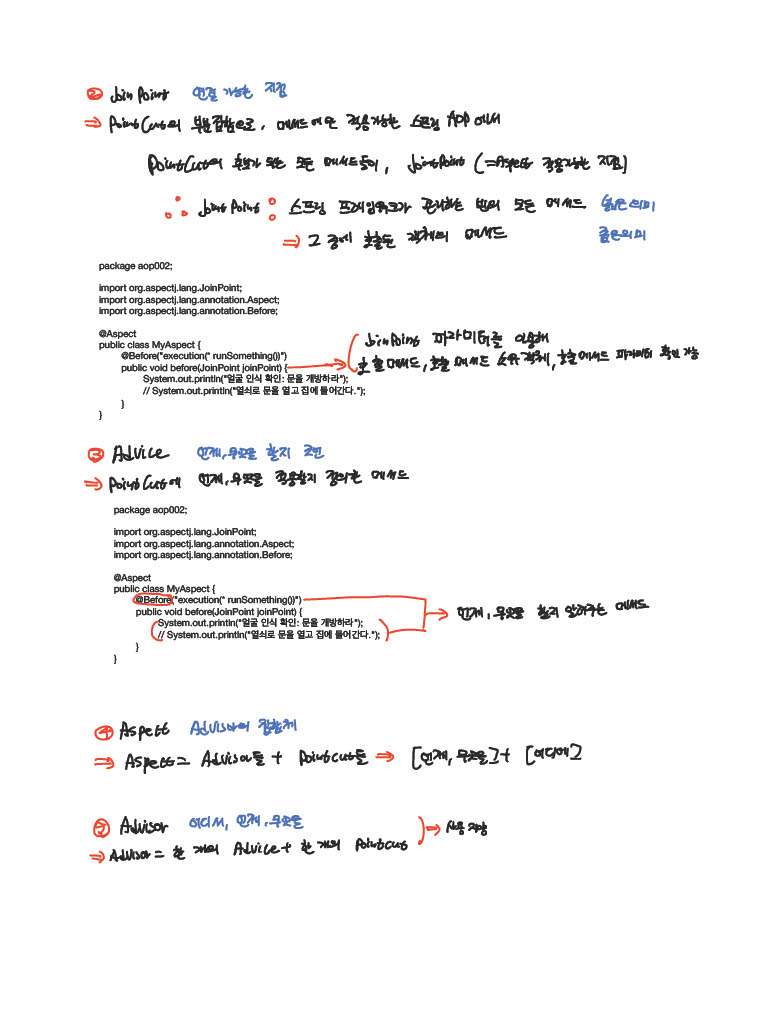 ② JoinPoint 연결 가능한 지점
⇒ PointCut의 부분집합으로, 메서드에만 적용가능한 스프링 AOP에서
PointCut의 후보가 되는 모든 메서드들이, JointPoint (=Aspect 적용가능한 지점)
∴ JointPoint : 스프링 프레임워크가 관리하는 빈의 모든 메서드 넓은의미
⇒ 그 중에 호출된 객체의 메서드 좁은의미
package aop002;
import org.aspectj.lang.JoinPoint;
import org.aspectj.lang.annotation.Aspect;
import org.aspectj.lang.annotation.Before;
@Aspect
public class MyAspect {
@Before("execution(* runSomething())")
JoinPoint 파라미터를 이용해
public void before(JoinPoint joinPoint) {
호출메서드, 호출 메서드 소유 객체, 호출메서드 파라미터 확인 가능
System.out.println("얼굴 인식 확인: 문을 개방하라");
// System.out.println("열쇠로 문을 열고 집에 들어간다.");
}
}
③ Advice 언제, 무엇을 할지
⇒ PointCut에 언제, 무엇을 적용할지 정의한 메서드
package aop002;
import org.aspectj.lang.JoinPoint;
import org.aspectj.lang.annotation.Aspect;
import org.aspectj.lang.annotation.Before;
@Aspect
public class MyAspect {
@Before("execution(* runSomething())")
public void before(JoinPoint joinPoint) {
언제, 무엇을 할지 알려주는 메서드
System.out.println("얼굴 인식 확인: 문을 개방하라");
// System.out.println("열쇠로 문을 열고 집에 들어간다.");
}
}
④ Aspect Advisor의 집합체
⇒ Aspect = Advisor들 + Pointcut들 ⇒ [언제, 무엇을] + [어디에]
⑤ Advisor 어디서, 언제, 무엇을
⇒ 사용 지양
⇒ Advisor = 한 개의 Advice + 한 개의 Pointcut